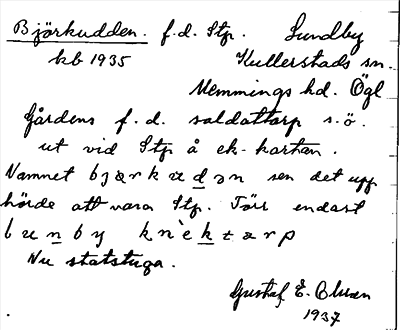 Björkudden. f.d. Stp. Lundby
kb 1935 Kullerstads sn.
Memmings hd. Ögl
Gårdens f.d. soldattorp s.ö.
ut vid Stp å ek. kartan.
Namnet bjærkɵdən sen det upp
hörde att vara Stp. Förr endast
lunby knèktærp
Nu statstuga.
Gustaf E.
1937